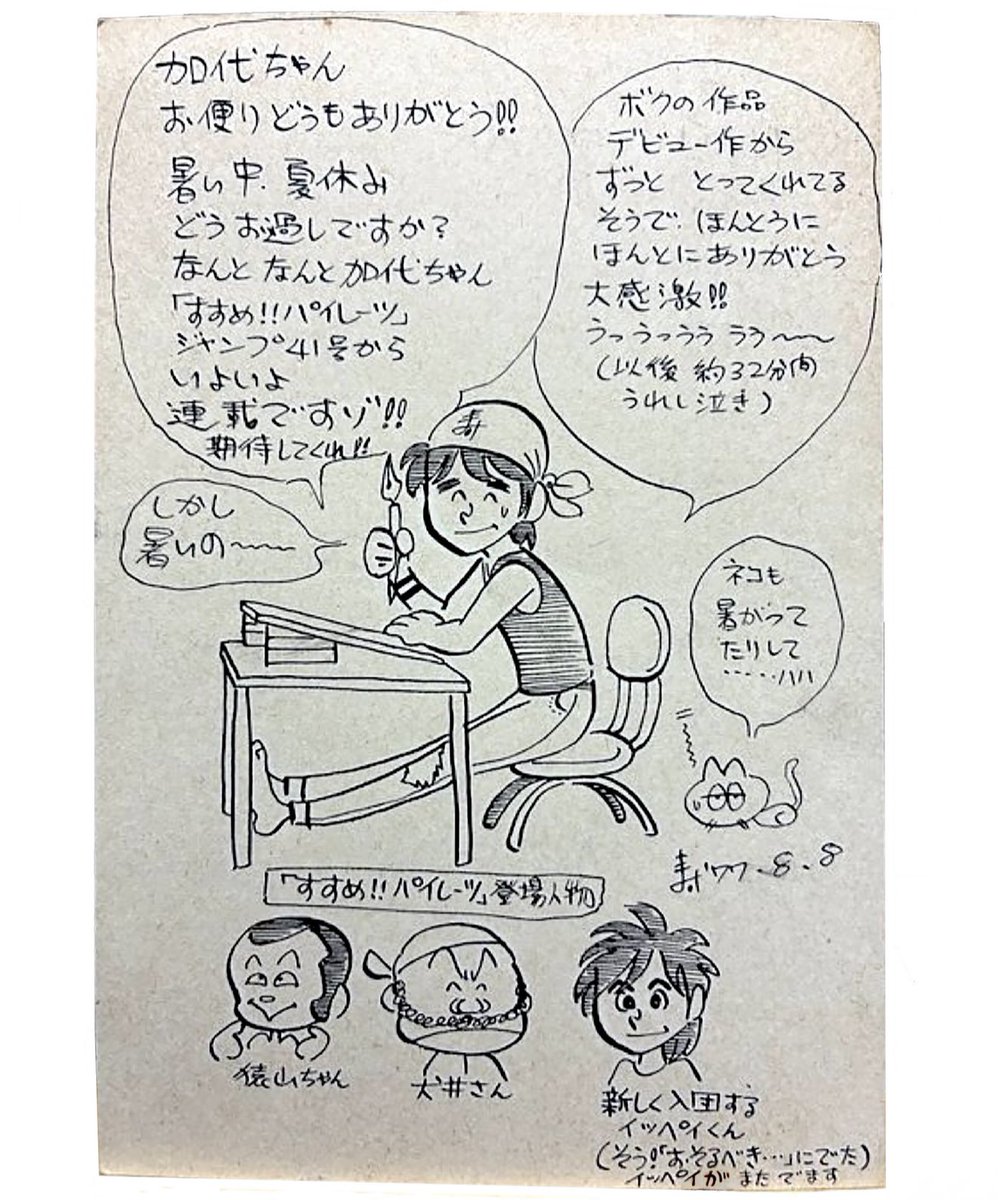 加代ちゃん
お便りどうもありがとう!!
暑い中、夏休み
どうお過しですか?
なんと なんと加代ちゃん
「すすめ!!パイレーツ」
ジャンプ41号から
いよいよ
連載ですゾ!!
期待してくれ!!
ボクの作品
デビュー作から
ずっと とってくれてる
そうで、ほんとうに
ほんとにありがとう
大感激!!
うっうっうぅ うぅ〜〜
(以後 約32分間
うれし泣き)
寿
しかし
暑いの〜〜〜
ネコも
暑がって
たりして
……ハハ
寿 '77.8.8
「すすめ!!パイレーツ」登場人物
猿山ちゃん
犬井さん
新しく入団する
イッペイくん
(そう!「おそるべき…」にでた)
イッペイが またでます